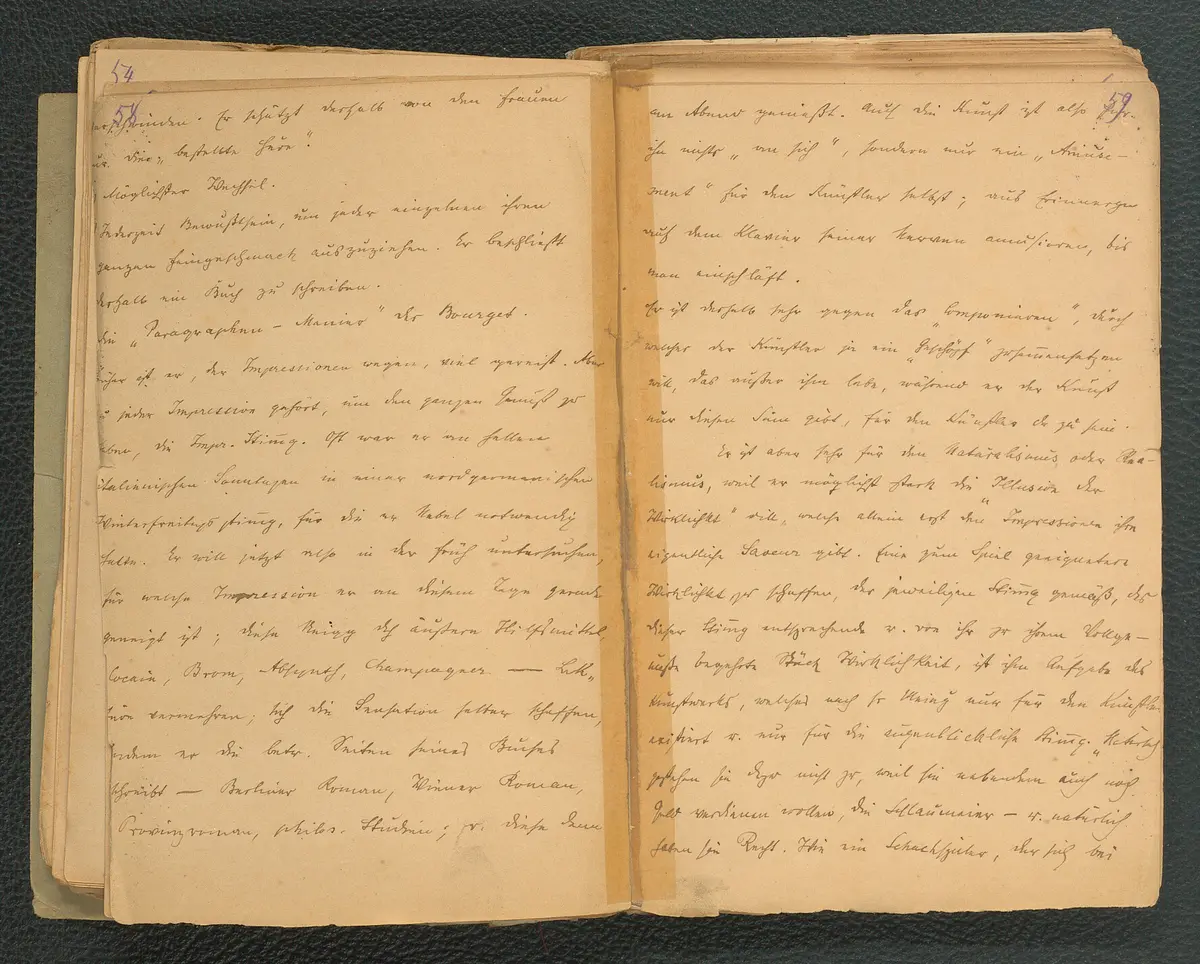 54
58
verschwinden. Er schützt deshalb von den Frauen
nur die „bestellte Hure“.
Möglichster Wechsel.
Jederzeit Bewußtsein, um jeder einzelnen ihren
ganzen Feingeschmack auszuziehen. Er beschließt
deshalb ein Buch zu schreiben.
die „Paragraphen – Manier“ des Bourget.
Früher ist er, der Impressionen wegen, viel gereist. Aber
zu jeder Impression gehört, um den ganzen Genuß zu
haben, die Impr. Stimg. Oft war er an hellen
italienischen Sonntagen in einer nordgermanischen
Winterfreitagsstimg, für die er Nebel notwendig
hatte. Er will jetzt also in der Früh untersuchen,
für welche Impression er an diesem Tage gerade
geneigt ist; diese Neigg dch äußere Hilfsmittel,
Cocain, Brom, Absynth, Champagner — Lek-
türe vermehren; sich die Sensation selber schaffen,
indem er die betr. Seiten seines Buches
schreibt — Berliner Roman, Wiener Roman,
Provinzroman, philos. Studien; diese dann
59
am Abend genießt. Auch die Kunst ist also für
ihn nichts „an sich“, sondern nur ein „Amuse-
ment“ für den Künstler selbst; aus Erinnergn
auf dem Klavier seiner Nerven amusieren, bis
man einschläft.
Er ist deshalb sehr gegen das „Componieren“, durch
welches der Künstler ja ein „Geschöpf“ zusammensetzen
will, das außer ihm lebe, während er der Kunst
nur diesen Sinn gibt, für den Künstler da zu sein.
Er ist aber sehr für den Naturalismus oder Rea-
lismus, weil er möglichst stark die „Illusion der
Wirklichkt“ will, welche allein erst den Impressionen ihre
eigentliche Saveur gibt. Eine zum Spiel geeignetere
Wirklichkt zu schaffen, der jeweiligen Stimg gemäß, das
dieser Stimg entsprechende u. von ihr zu ihrem Vollge-
nuße begehrte Stück Wirklichkeit, ist ihm Aufgabe des
Kunstwerks, welches nach sr Meing nur für den Künstler
existiert u. nur für die augenblickliche Stimg. „Natürlich
gestehen sie dazu nicht zu, weil sie nebendem auch noch
Geld verdienen wollen, die Schlaumeier – u. natürlich
haben sie Recht. Wie ein Schachspieler, der sich bei